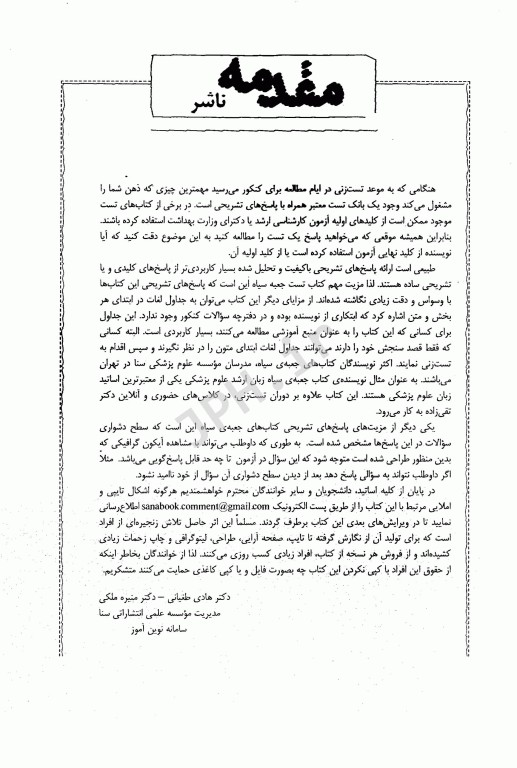 مقدمه
ناشر
هنگامی که به موعد تست‌زنی در ایام مطالعه برای کنکور می‌رسید مهمترین چیزی که ذهن شما را
مشغول می‌کند وجود یک بانک تست معتبر همراه با پاسخ‌های تشریحی است. در برخی از کتاب‌های تست
موجود ممکن است از کلیدهای اولیه آزمون کارشناسی ارشد یا دکترای وزارت بهداشت استفاده کرده باشند.
بنابراین همیشه موقعی که می‌خواهید پاسخ یک تست را مطالعه کنید به این موضوع دقت کنید که آیا
نویسنده از کلید نهایی آزمون استفاده کرده است یا از کلید اولیه آن.
طبیعی است ارائه پاسخ‌های تشریحی باکیفیت و تحلیل شده بسیار کاربردی‌تر از پاسخ‌های کلیدی و یا
تشریحی ساده هستند. لذا مزیت مهم کتاب تست جعبه سیاه این است که پاسخ‌های تشریحی این کتاب‌ها
با وسواس و دقت زیادی نگاشته شده‌اند. از مزایای دیگر این کتاب می‌توان به جداول لغات در ابتدای هر
بخش و متن اشاره کرد که ابتکاری از نویسنده بوده و در دفترچه سؤالات کنکور وجود ندارد. این جداول
برای کسانی که این کتاب را به عنوان منبع آموزشی مطالعه می‌کنند، بسیار کاربردی است. البته کسانی
که فقط قصد سنجش خود را دارند می‌توانند جداول لغات ابتدای متون را در نظر نگیرند و سپس اقدام به
تست‌زنی نمایند. اکثر نویسندگان کتاب‌های جعبه‌ی سیاه، مدرسان مؤسسه علوم پزشکی سنا در تهران
می‌باشند. به عنوان مثال نویسنده‌ی کتاب جعبه‌ی سیاه زبان ارشد علوم پزشکی یکی از معتبرترین اساتید
زبان علوم پزشکی هستند. این کتاب علاوه بر دوران تست‌زنی، در کلاس‌های حضوری و آنلاین دکتر
تقی‌زاده به کار می‌رود.
یکی دیگر از مزیت‌های پاسخ‌های تشریحی کتاب‌های جعبه‌ی سیاه این است که سطح دشواری
سؤالات در این پاسخ‌ها مشخص شده است. به طوری که داوطلب می‌تواند با مشاهده آیکون گرافیکی که
بدین منظور طراحی شده است متوجه شود که این سؤال در آزمون تا چه حد قابل پاسخ‌گویی می‌باشد. مثلاً
اگر داوطلب نتواند به سؤالی پاسخ دهد بعد از دیدن سطح دشواری آن سؤال از خود ناامید نشود.
در پایان از کلیه اساتید، دانشجویان و سایر خوانندگان محترم خواهشمندیم هرگونه اشکال تایپی و
املایی مرتبط با این کتاب را از طریق پست الکترونیک sanabook.comment@gmail.com اطلاع‌رسانی
نمایید تا در ویرایش‌های بعدی این کتاب برطرف گردند. مسلماً این اثر حاصل تلاش زنجیره‌ای از افراد
است که برای تولید آن از نگارش گرفته تا تایپ، صفحه آرایی، طراحی، لیتوگرافی و چاپ زحمات زیادی
کشیده‌اند و از فروش هر نسخه از کتاب، افراد زیادی کسب روزی می‌کنند. لذا از خوانندگان بخاطر اینکه
از حقوق این افراد با کپی نکردن این کتاب چه بصورت فایل و یا کپی کاغذی حمایت می‌کنند متشکریم.
دکتر هادی طغیانی – دکتر منیره ملکی
مدیریت مؤسسه علمی انتشاراتی سنا
سامانه نوین آموز
JPH.ir